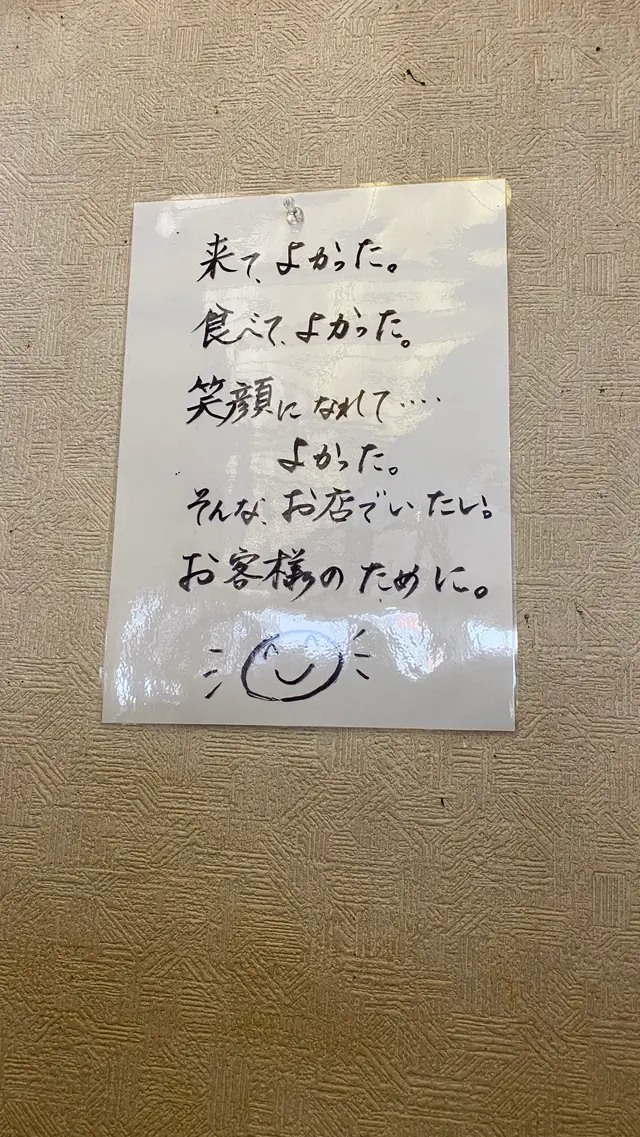 来て、よかった。
食べて、よかった。
笑顔になれて‥‥
よかった。
そんな、お店でいたい。
お客様のために。